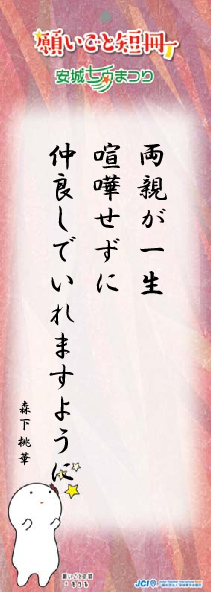 願いごと短冊
安城七夕まつり
両親が一生
喧嘩せずに
仲良しでいれますように
森下桃華
JCI